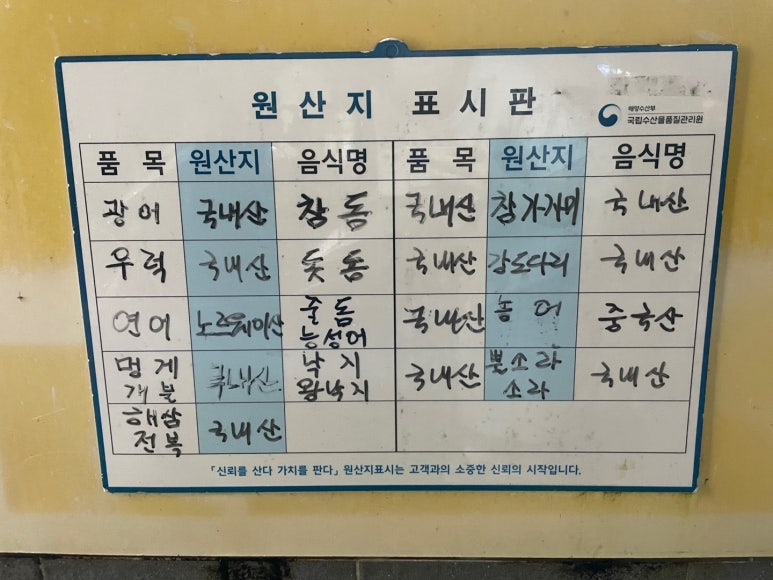 원산지 표시판
해양수산부
국립수산물품질관리원
품목 원산지 음식명 품목 원산지 음식명
광어 국내산 참돔 국내산 참가자미 국내산
우럭 국내산 돗돔 국내산 강도다리 국내산
연어 노르웨이산 줄돔 능성어 국내산 농어 중국산
멍게 개불 국내산 낙지 왕낙지 국내산 뿔소라 소라 국내산
해삼 전복 국내산
「신뢰를 산다 가치를 판다」 원산지표시는 고객과의 소중한 신뢰의 시작입니다.